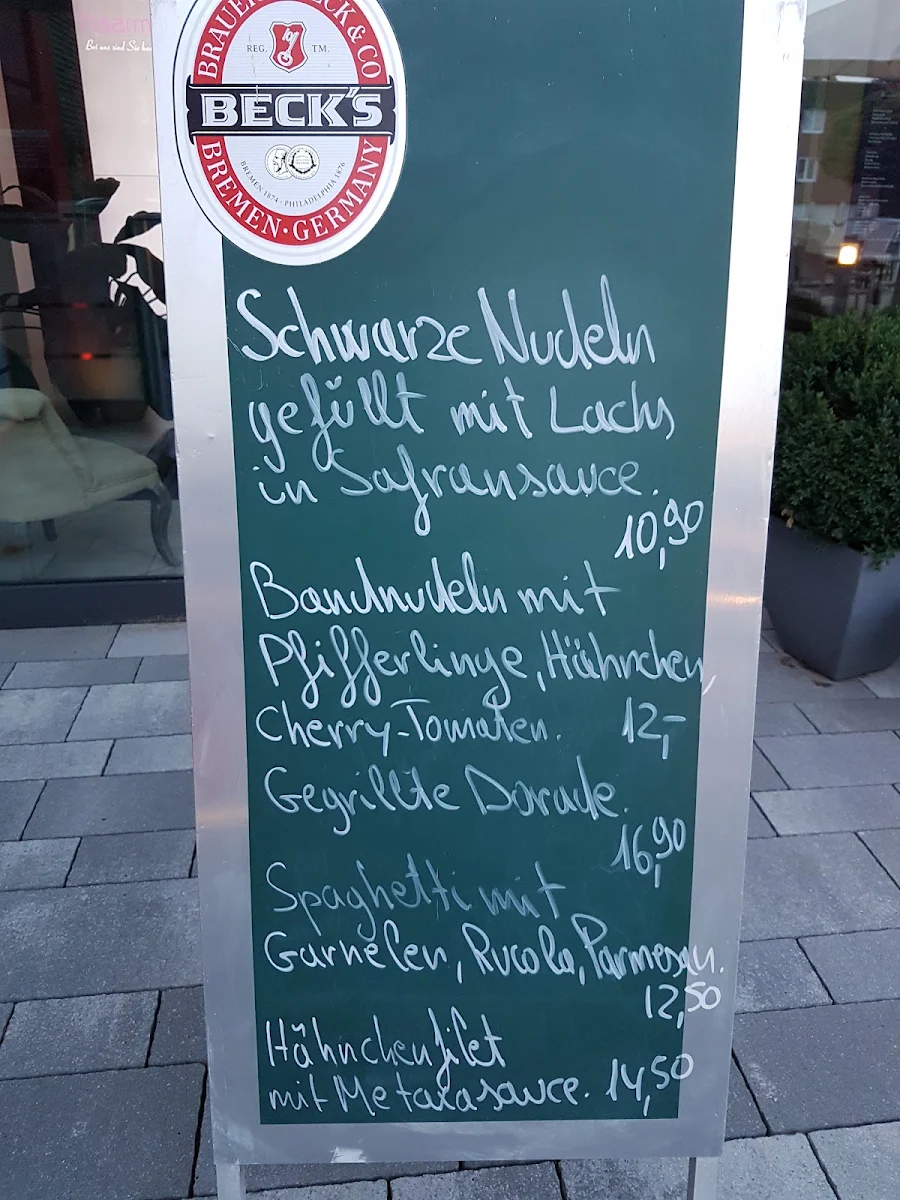 BRAUEREI BECK & CO
REG. TM.
BECK'S
BREMEN 1874 · PHILADELPHIA 1876
BREMEN · GERMANY
Bei uns sind Sie
Schwarze Nudeln
gefüllt mit Lachs
in Safransauce.
10,90
Bandnudeln mit
Pfifferlinge, Hähnchen,
Cherry-Tomaten. 12,-
Gegrillte Dorade.
16,90
Spaghetti mit
Garnelen, Rucola, Parmesan.
12,50
Hähnchenfilet
mit Metaxasauce. 14,50